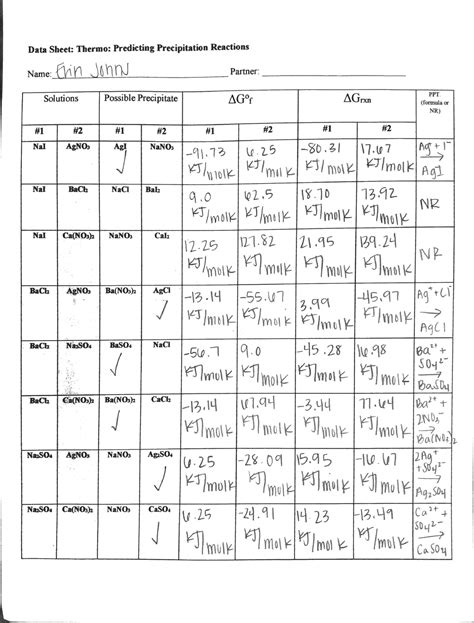 Data Sheet: Thermo: Predicting Precipitation Reactions
Name: Erin Johns Partner:
Solutions Possible Precipitate ΔG°f ΔGrxn PPT (formula or NR)
#1 #2 #1 #2 #1 #2 #1 #2
NaI AgNO3 AgI ✓ NaNO3 -91.73 KJ/molK 6.25 KJ/molK -80.31 KJ/molK 17.67 KJ/molK Ag+ + I- → AgI
NaI BaCl2 NaCl BaI2 9.0 KJ/molK 62.5 KJ/molK 18.70 KJ/molK 73.92 KJ/molK NR
NaI Ca(NO3)2 NaNO3 CaI2 12.25 KJ/molK 127.82 KJ/molK 21.95 KJ/molK 139.24 KJ/molK NR
BaCl2 AgNO3 Ba(NO3)2 AgCl ✓ -13.14 KJ/molK -55.67 KJ/molK 3.99 KJ/molK -45.97 KJ/molK Ag+ + Cl- → AgCl
BaCl2 Na2SO4 BaSO4 ✓ NaCl -56.7 KJ/molK 9.0 KJ/molK -45.28 KJ/molK 16.98 KJ/molK Ba2+ + SO42- → BaSO4
BaCl2 Ca(NO3)2 Ba(NO3)2 ✓ CaCl2 -13.14 KJ/molK 67.94 KJ/molK -3.44 KJ/molK 77.64 KJ/molK Ba2+ + 2NO3- → Ba(NO3)2
Na2SO4 AgNO3 NaNO3 Ag2SO4 ✓ 6.25 KJ/molK -28.09 KJ/molK 15.95 KJ/molK -16.67 KJ/molK 2Ag+ + SO42- → Ag2SO4
Na2SO4 Ca(NO3)2 NaNO3 CaSO4 ✓ 6.25 KJ/molK -24.91 KJ/molK 14.23 KJ/molK -13.49 KJ/molK Ca2+ + SO42- → CaSO4